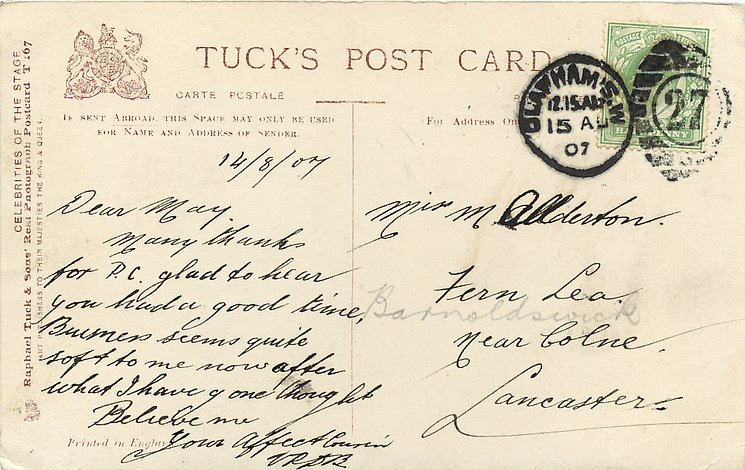 CELEBRITIES OF THE STAGE
Raphael Tuck & Sons' Real Photograph Postcard T 167
ART PUBLISHERS TO THEIR MAJESTIES THE KING & QUEEN.
TUCK'S POST CARD
CARTE POSTALE
IF SENT ABROAD, THIS SPACE MAY ONLY BE USED
FOR NAME AND ADDRESS OF SENDER.
For Address On
CLAPHAM S.W
12.15.A
15 AU
07
27
POSTAGE
HALF PENNY
14/8/07
Dear May.
Many thanks
for P.C. glad to hear
you had a good time,
Business seems quite
soft to me now after
what I have gone thought
Believe me
Your Affect Cousin
Printed in England
Miss M Allderton.
Fern Lea.
Barnoldswick
Near Colne.
Lancaster